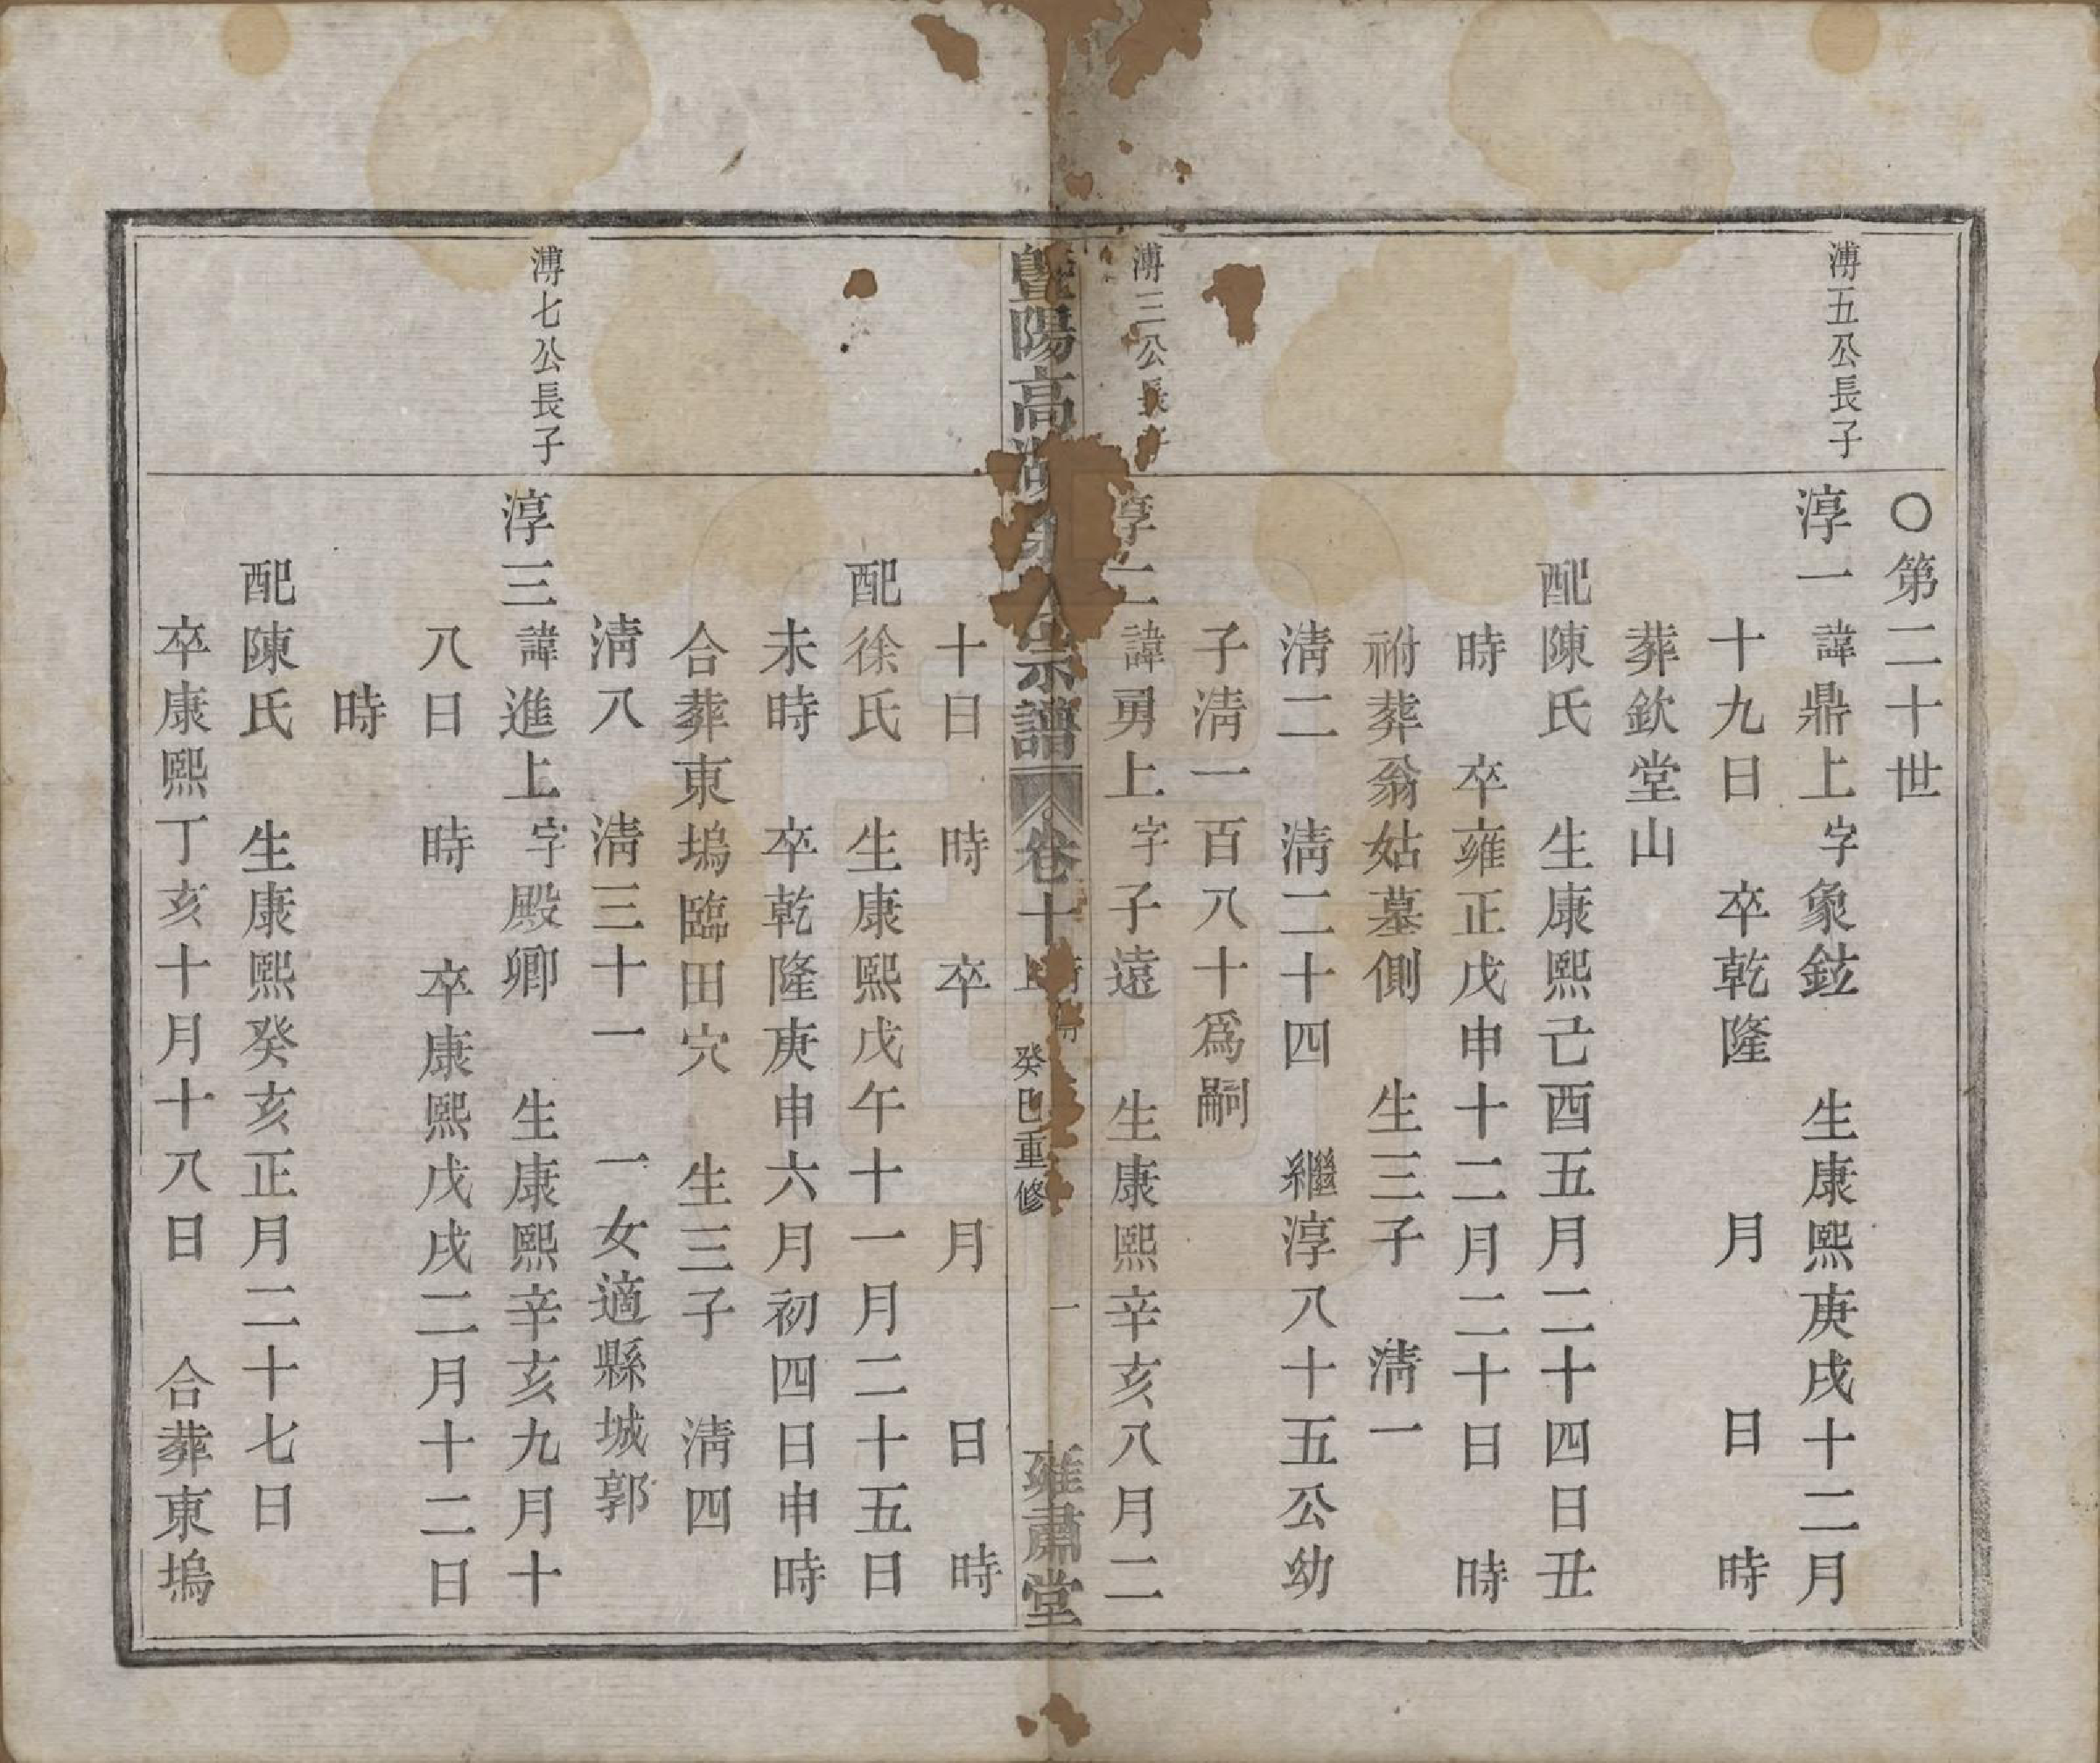 ○第二十世
溥五公長子
淳一諱鼎上字象鉉　生康熙庚戌十二月
十九日　卒乾隆　月　日　時
葬欽堂山
配陳氏　生康熙己酉五月二十四日丑
時　卒雍正戊申十二月二十日　時
祔葬翁姑墓側　生三子　淸一
淸二　淸二十四　繼淳八十五公幼
子淸一百八十爲嗣
溥三公長
淳二諱勇上字子遠　生康熙辛亥八月二
暨陽高湖 宗譜　卷十　癸巳重修　一　雍肅堂
十日　時　卒　月　日　時
配徐氏　生康熙戊午十一月二十五日
未時　卒乾隆庚申六月初四日申時
合葬東塢臨田穴　生三子　淸四
淸八　淸三十一　一女適縣城郭
溥七公長子
淳三諱進上字殿卿　生康熙辛亥九月十
八日　時　卒康熙戊戌二月十二日
時
配陳氏　生康熙癸亥正月二十七日
卒康熙丁亥十月十八日　合葬東塢